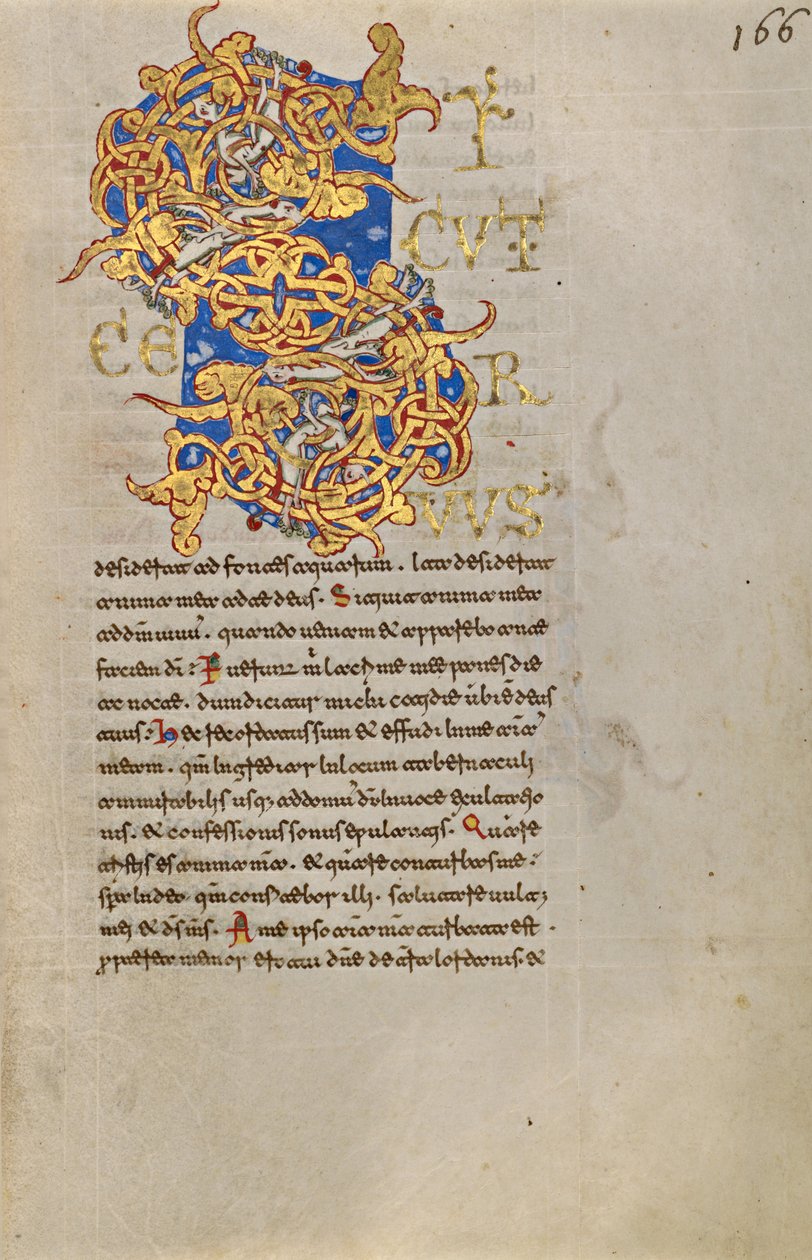 166
S Y
CVT
CE R
VVS
desiderat ad fontes aquarum . Ita desiderat
anima mea ad te deus . Sitiuit anima mea
ad dm̄ uiuū . quando ueniam & apparebo ante
faciem dī : Fuerunt m̄ lacrime mee panes die
ac nocte . dum dicitur michi cotidie ubi ē deus
tuus : Hec recordatus sum & effudi in me aīam
meam . qm̄ ingrediar in locum tabernaculi
ammirabilis usq; ad domū dī In uoce exultatio
nis . & confessionis sonus epulantis . Quare
tristis es anima mea . & quare conturbas me :
Spera in deo qm̄ confitebor illi . salutare uultꝫ
mei & ds̄ ms̄ . A me ipso aīa mea turbata est .
ꝓpterea memor ero tui dn̄e de tr̄a iordanis . &